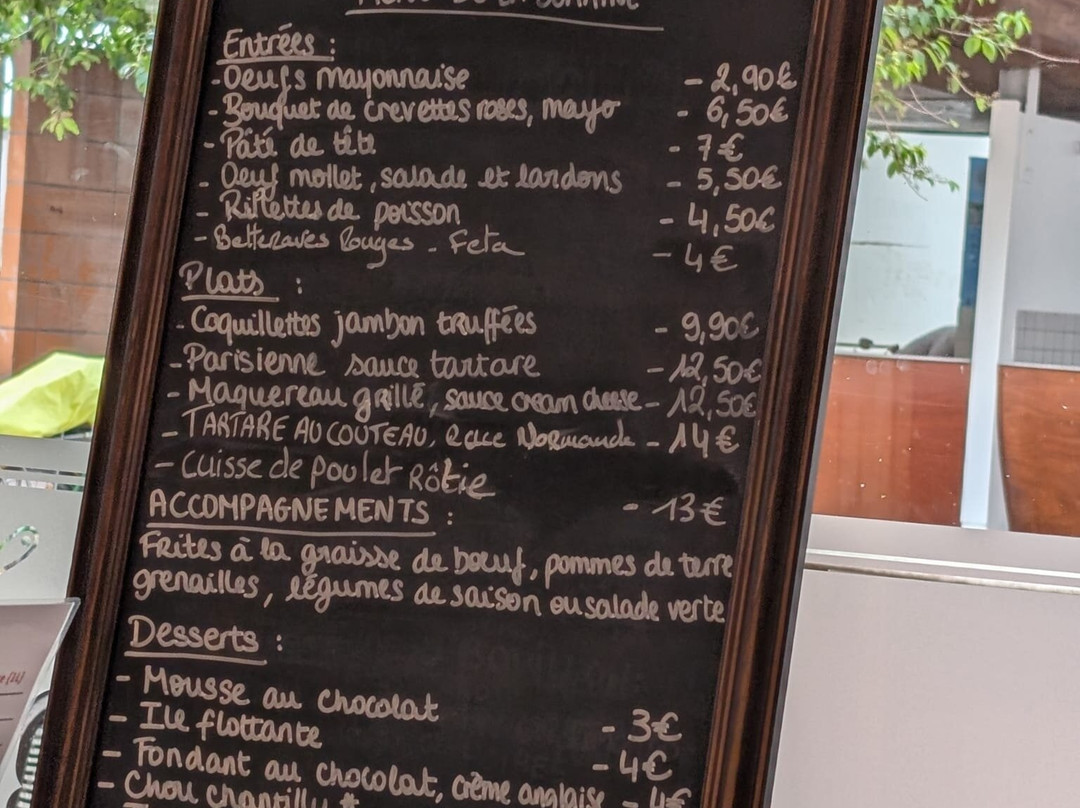 MENU DE LA SEMAINE
Entrées :
- Oeufs mayonnaise - 2,90€
- Bouquet de crevettes roses, mayo - 6,50€
- Pâté de tête - 7€
- Oeuf mollet, salade et lardons - 5,50€
- Rillettes de poisson - 4,50€
- Betteraves Rouges - Feta - 4€
Plats :
- Coquillettes jambon truffées - 9,90€
- Parisienne sauce tartare - 12,50€
- Maquereau grillé, sauce cream cheese - 12,50€
- TARTARE AU COUTEAU, Race Normande - 14€
- Cuisse de poulet Rôtie - 13€
ACCOMPAGNEMENTS :
Frites à la graisse de bœuf, pommes de terre
grenailles, légumes de saison ou salade verte
Desserts :
- Mousse au chocolat - 3€
- Ile flottante - 4€
- Fondant au chocolat, crème anglaise - 4€
- Chou chantilly